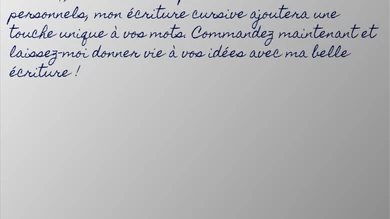 personnels, mon écriture cursive ajoutera une
touche unique à vos mots. Commandez maintenant et
laissez-moi donner vie à vos idées avec ma belle
écriture !